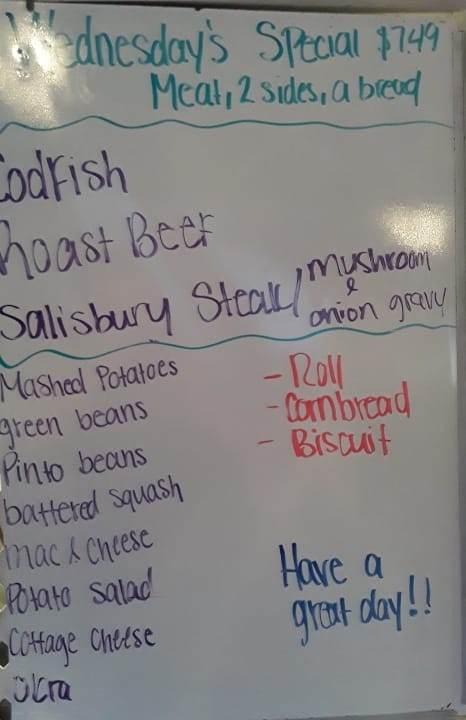 Wednesday's Special $7.49
Meat, 2 sides, a bread
Codfish
Roast Beef
Salisbury Steak/ mushroom
&
onion gravy
Mashed Potatoes
green beans
Pinto beans
battered squash
mac & cheese
Potato salad
Cottage cheese
Okra
- Roll
- Cornbread
- Biscuit
Have a
great day!!